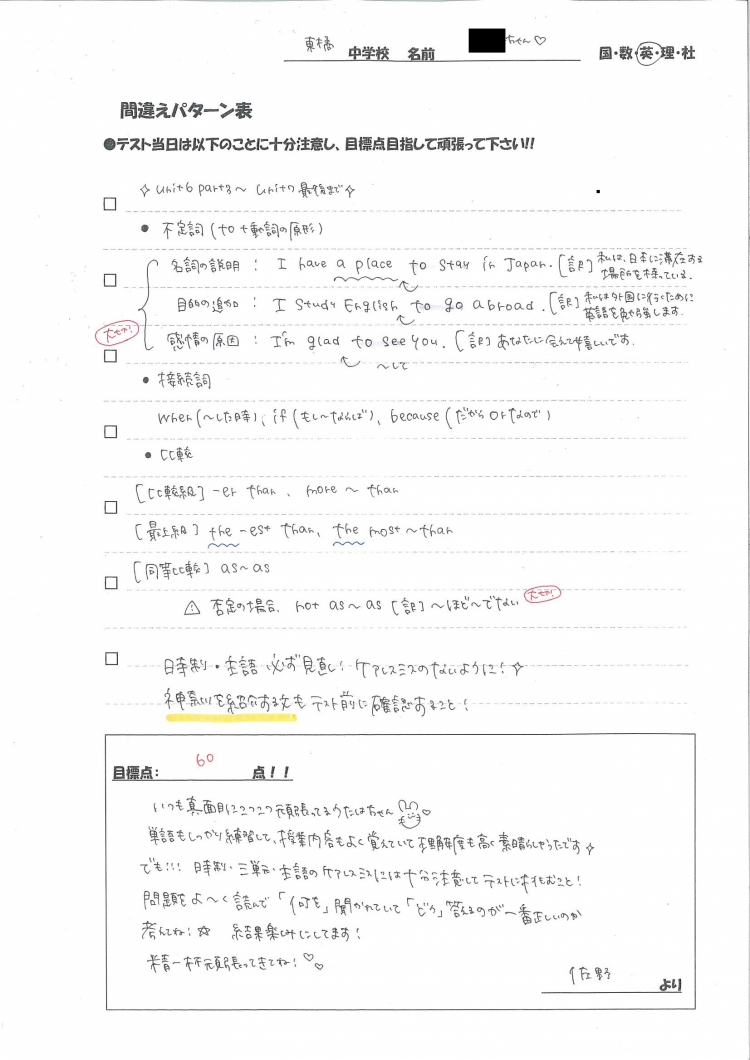 東橘 中学校 名前 ちゃん♡ 国・数・英・理・社
間違えパターン表
●テスト当日は以下のことに十分注意し、目標点目指して頑張って下さい!!
☆ unit6 part3～ unit7 最後まで☆
● 不定詞 (to+動詞の原形)
名詞の説明 : I have a place to stay in Japan. [訳] 私は、日本に滞在する
場所を持っている。
目的の追加 : I study English to go abroad. [訳] 私は外国に行くために
英語を勉強します。
大せつ!
感情の原因 : I'm glad to see you. [訳] あなたに会えて嬉しいです。
～して
● 接続詞
when (～した時)、if (もし～ならば)、because (だから or なので)
● 比較
[比較級] -er than 、 more ～ than
[最上級] the -est than、 the most ～ than
[同等比較] as～as
⚠ 否定の場合、 not as～as [訳] ～ほど～でない 大せつ!
時制・主語 必ず見直し! ケアレスミスのないように!☆
神奈川を紹介する文も テスト前に確認すること!
目標点: 60 点!!
いつも真面目にコツコツ頑張ってるうたはちゃん ♡
単語もしっかり練習して、授業内容もよく覚えていて理解度も高く素晴らしかったです☆
でも!!! 時制・三単元・主語のケアレスミスには十分注意してテストに挑むこと!
問題をよ～く読んで「何を」聞かれていて「どう」答えるのが一番正しいのか
考えてね!☆ 結果楽しみにしてます!
精一杯頑張ってきてね!♡♡
佐野 より